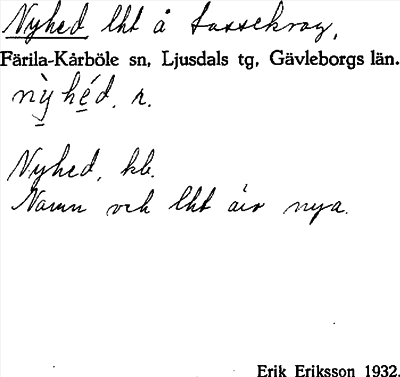 Nyhed lht å Tassekrog,
Färila-Kårböle sn, Ljusdals tg, Gävleborgs län.
nỳhéd. r.
Nyhed, kb.
Namn och lht äro nya.
Erik Eriksson 1932.